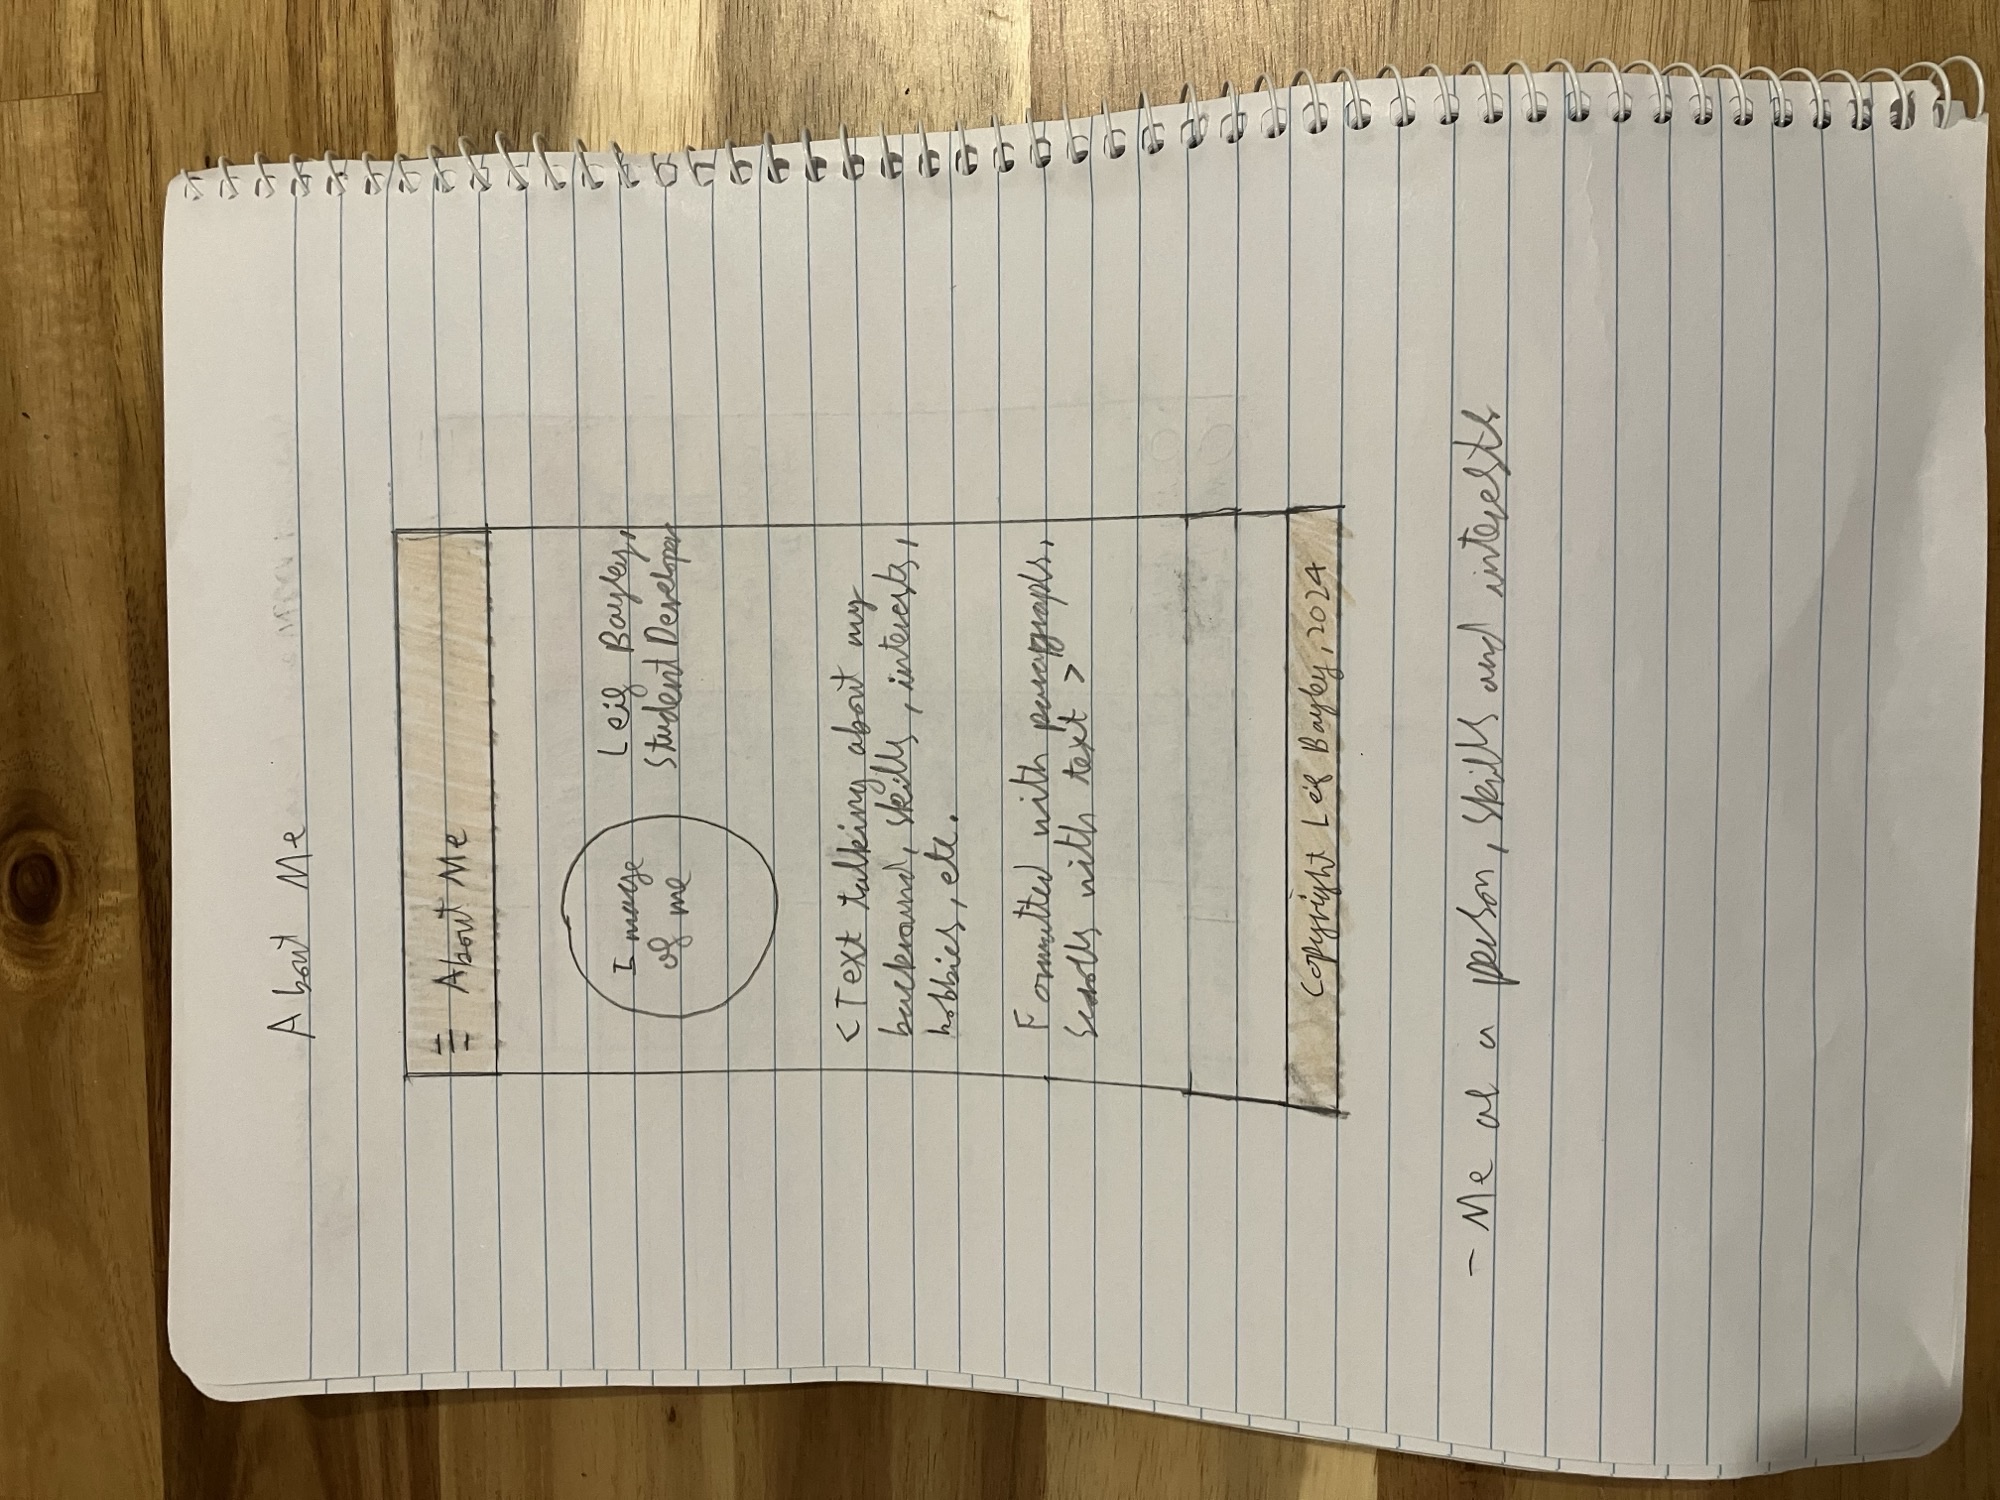 About Me
☰ About Me
Image
of me
Leif Bayley,
Student Developer
<Text talking about my
backround, skills, interests,
hobbies, etc.
Formatted with paragraphs,
scrolls with text >
Copyright Leif Bayley, 2024
- Me as a person, skills and interests